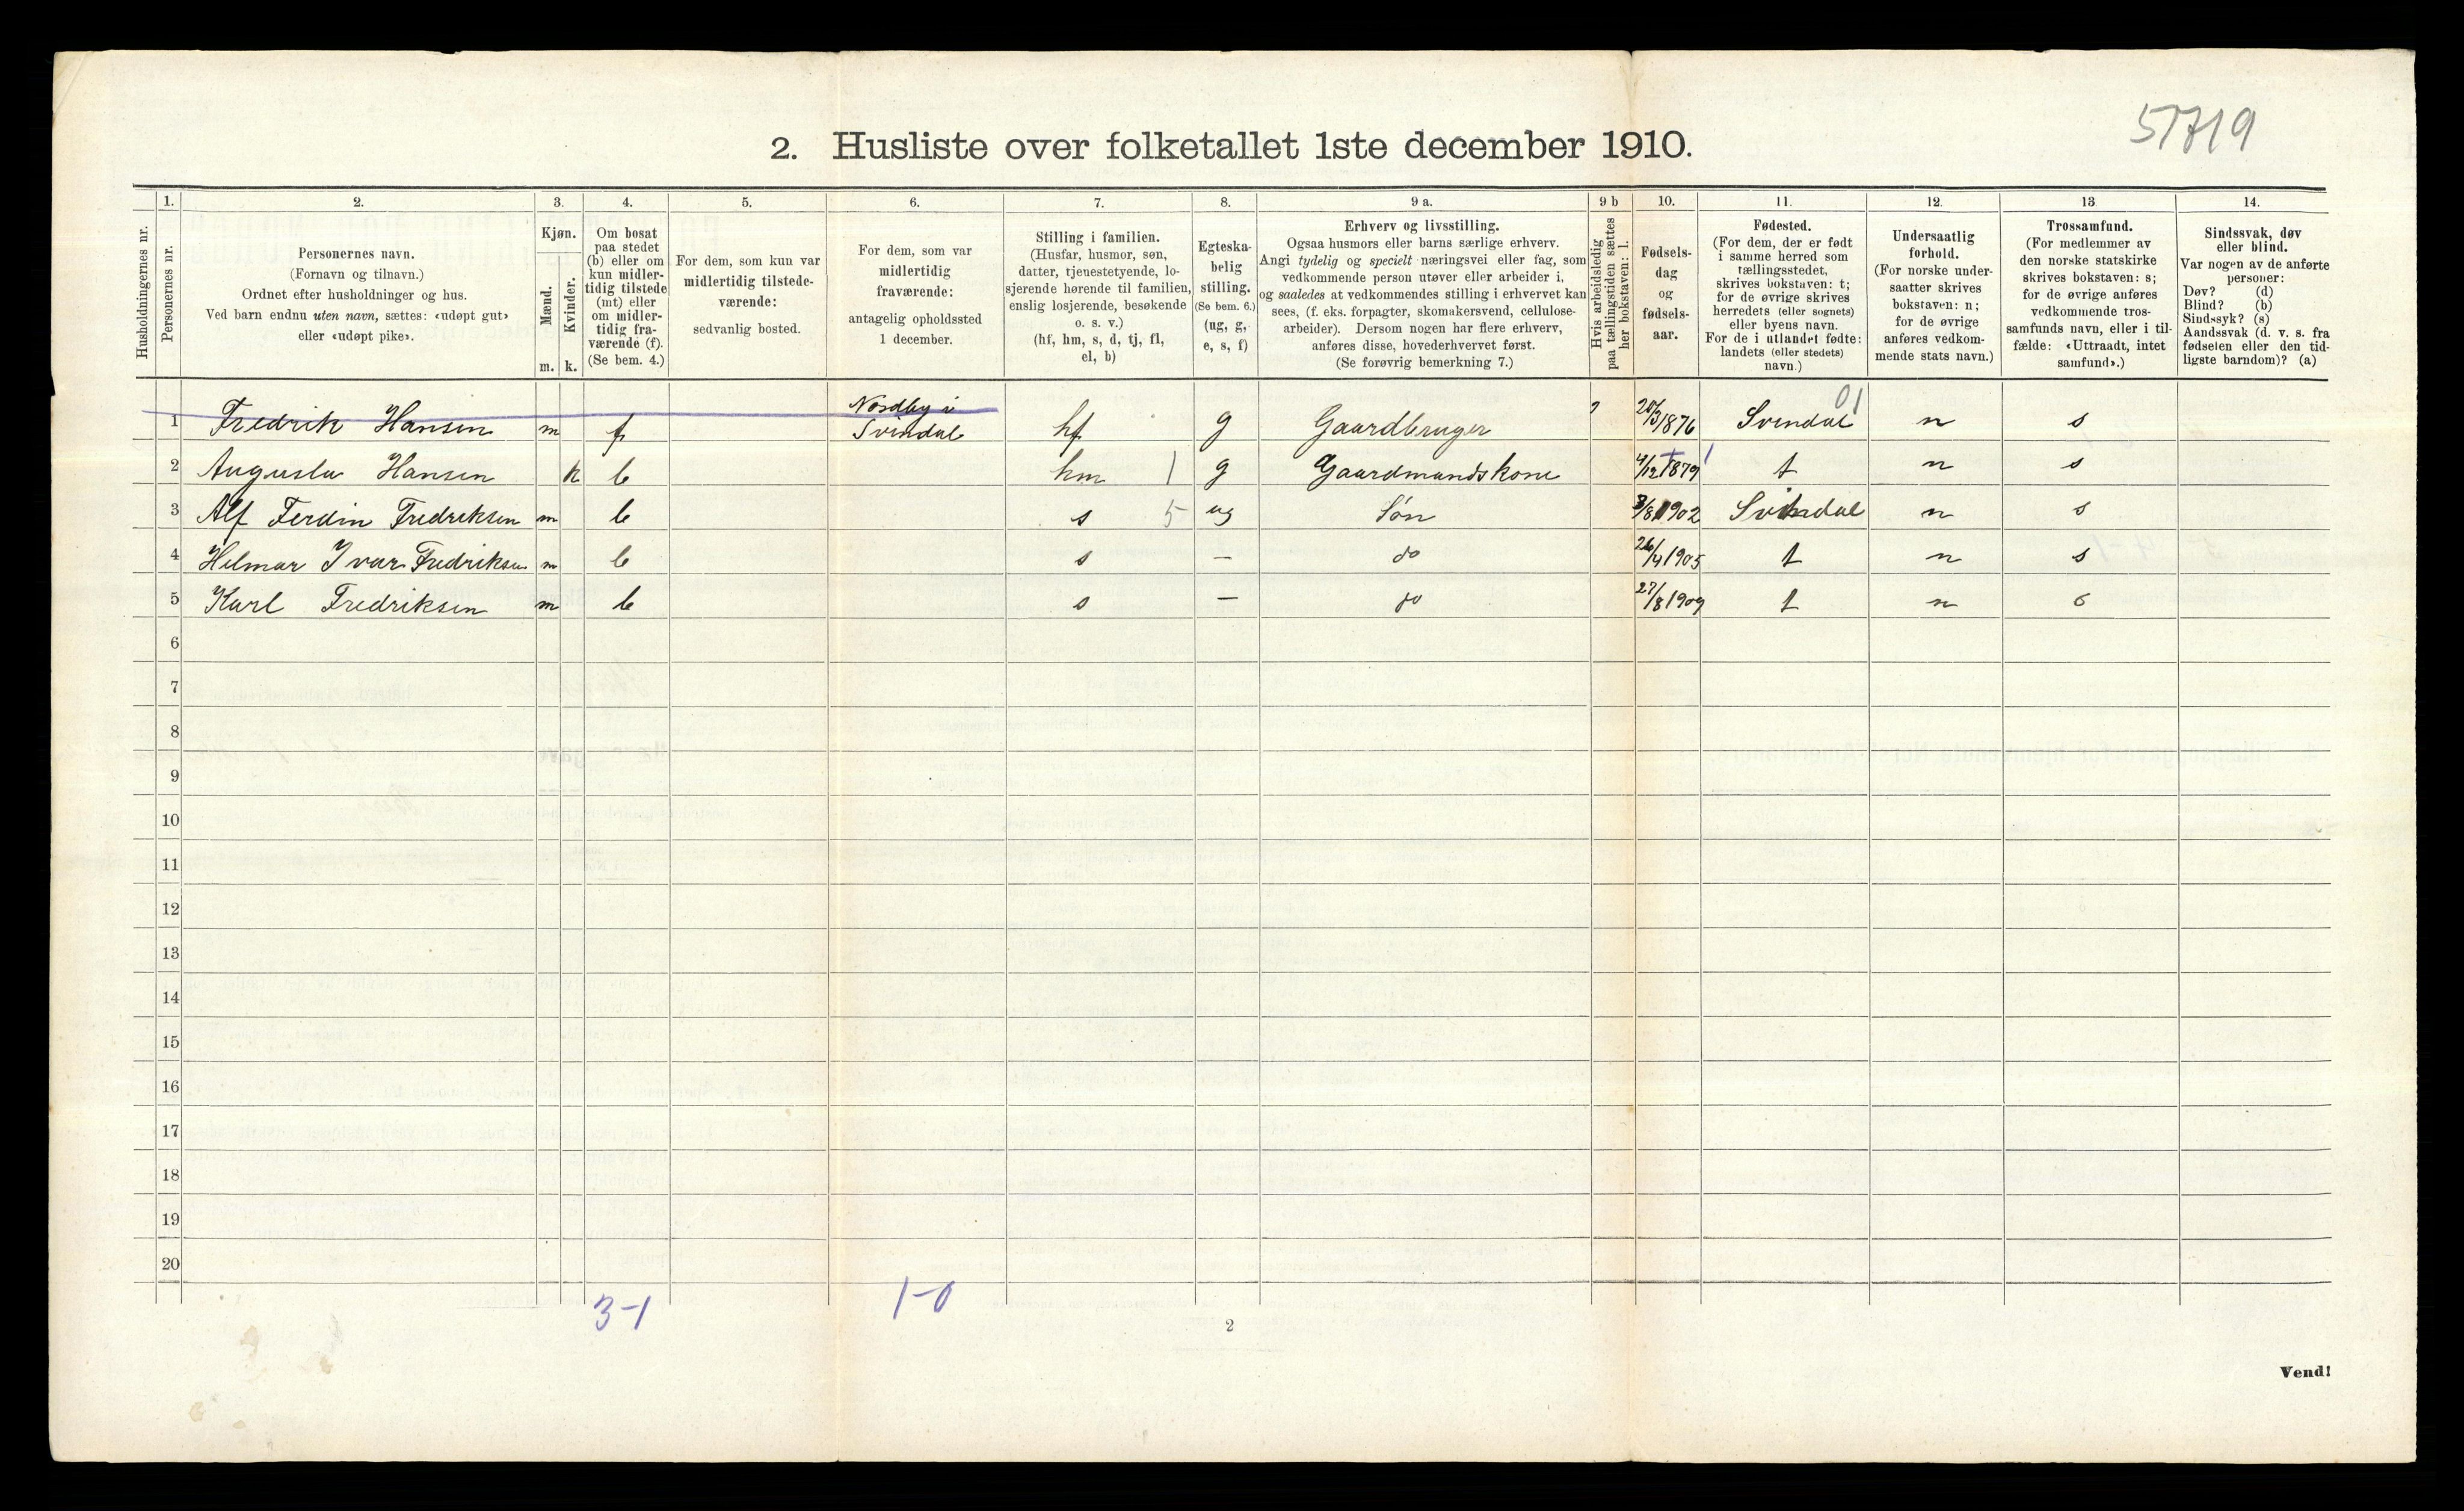 51719
2. Husliste over folketallet 1ste december 1910.
Husholdningernes nr.
1.
Personernes nr.
2.
Personernes navn.
(Fornavn og tilnavn.)
Ordnet efter husholdninger og hus.
Ved barn endnu uten navn, sættes: «udøpt gut»
eller «udøpt pike».
3.
Kjøn.
Mænd.
Kvinder.
m. k.
4.
Om bosat
paa stedet
(b) eller om
kun midler-
tidig tilstede
(mt) eller
om midler-
tidig fra-
værende (f).
(Se bem. 4.)
5.
For dem, som kun var
midlertidig tilstede-
værende:
sedvanlig bosted.
6.
For dem, som var
midlertidig
fraværende:
antagelig opholdssted
1 december.
7.
Stilling i familien.
(Husfar, husmor, søn,
datter, tjenestetyende, lo-
sjerende hørende til familien,
enslig losjerende, besøkende
o. s. v.)
(hf, hm, s, d, tj, fl,
el, b)
8.
Egteska-
belig
stilling.
(Se bem. 6.)
(ug, g,
e, s, f)
9 a.
Erhverv og livsstilling.
Ogsaa husmors eller barns særlige erhverv.
Angi tydelig og specielt næringsvei eller fag, som
vedkommende person utøver eller arbeider i,
og saaledes at vedkommendes stilling i erhvervet kan
sees, (f. eks. forpagter, skomakersvend, cellulose-
arbeider). Dersom nogen har flere erhverv,
anføres disse, hovederhvervet først.
(Se forøvrig bemerkning 7.)
9 b
Hvis arbeidsledig
paa tællingstiden sættes
her bokstaven: l.
10.
Fødsels-
dag
og
fødsels-
aar.
11.
Fødested.
(For dem, der er født
i samme herred som
tællingsstedet,
skrives bokstaven: t;
for de øvrige skrives
herredets (eller sognets)
eller byens navn.
For de i utlandet fødte:
landets (eller stedets)
navn.)
12.
Undersaatlig
forhold.
(For norske under-
saatter skrives
bokstaven: n;
for de øvrige
anføres vedkom-
mende stats navn.)
13
Trossamfund.
(For medlemmer av
den norske statskirke
skrives bokstaven: s;
for de øvrige anføres
vedkommende tros-
samfunds navn, eller i til-
fælde: «Uttraadt, intet
samfund».)
14.
Sindssvak, døv
eller blind.
Var nogen av de anførte
personer:
Døv? (d)
Blind? (b)
Sindssyk? (s)
Aandssvak (d. v. s. fra
fødselen eller den tid-
ligste barndom)? (a)
1 Fredrik Hansen m f Nordby i Svendal hf g Gaardbruger 20/3 1876 Svendal 01 n s
2 Augusta Hansen k b hm 1 g Gaardmandskone 4/12 1879 t n s
3 Alf Ferdin Fredriksen m b s 5 ug Søn 3/8 1902 Svindal n s
4 Helmar Ivar Fredriksen m b s — do 26/4 1905 t n s
5 Karl Fredriksen m b s — do 27/8 1909 t n s
6
7
8
9
10
11
12
13
14
15
16
17
18
19
20
3-1 1-0
2
Vend!